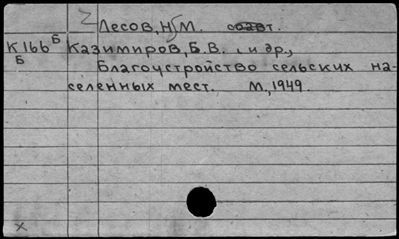 Лесов, Н.М. соавт.
К166Б Казимиров, Б.В. , и др.,
Б
Благоустройство сельских на-
селенных мест. М, 1949.
x